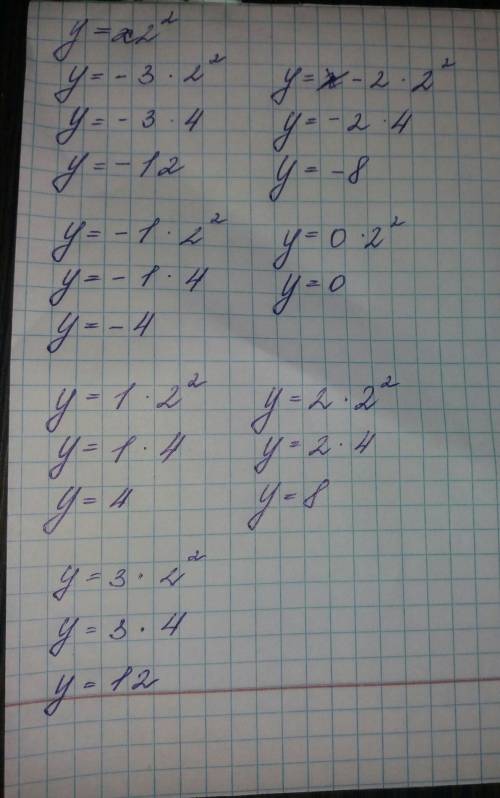 y = x2²
y = -3 · 2²
y = -3 · 4
y = -12
y = -2 · 2²
y = -2 · 4
y = -8
y = -1 · 2²
y = -1 · 4
y = -4
y = 0 · 2²
y = 0
y = 1 · 2²
y = 1 · 4
y = 4
y = 2 · 2²
y = 2 · 4
y = 8
y = 3 · 2²
y = 3 · 4
y = 12